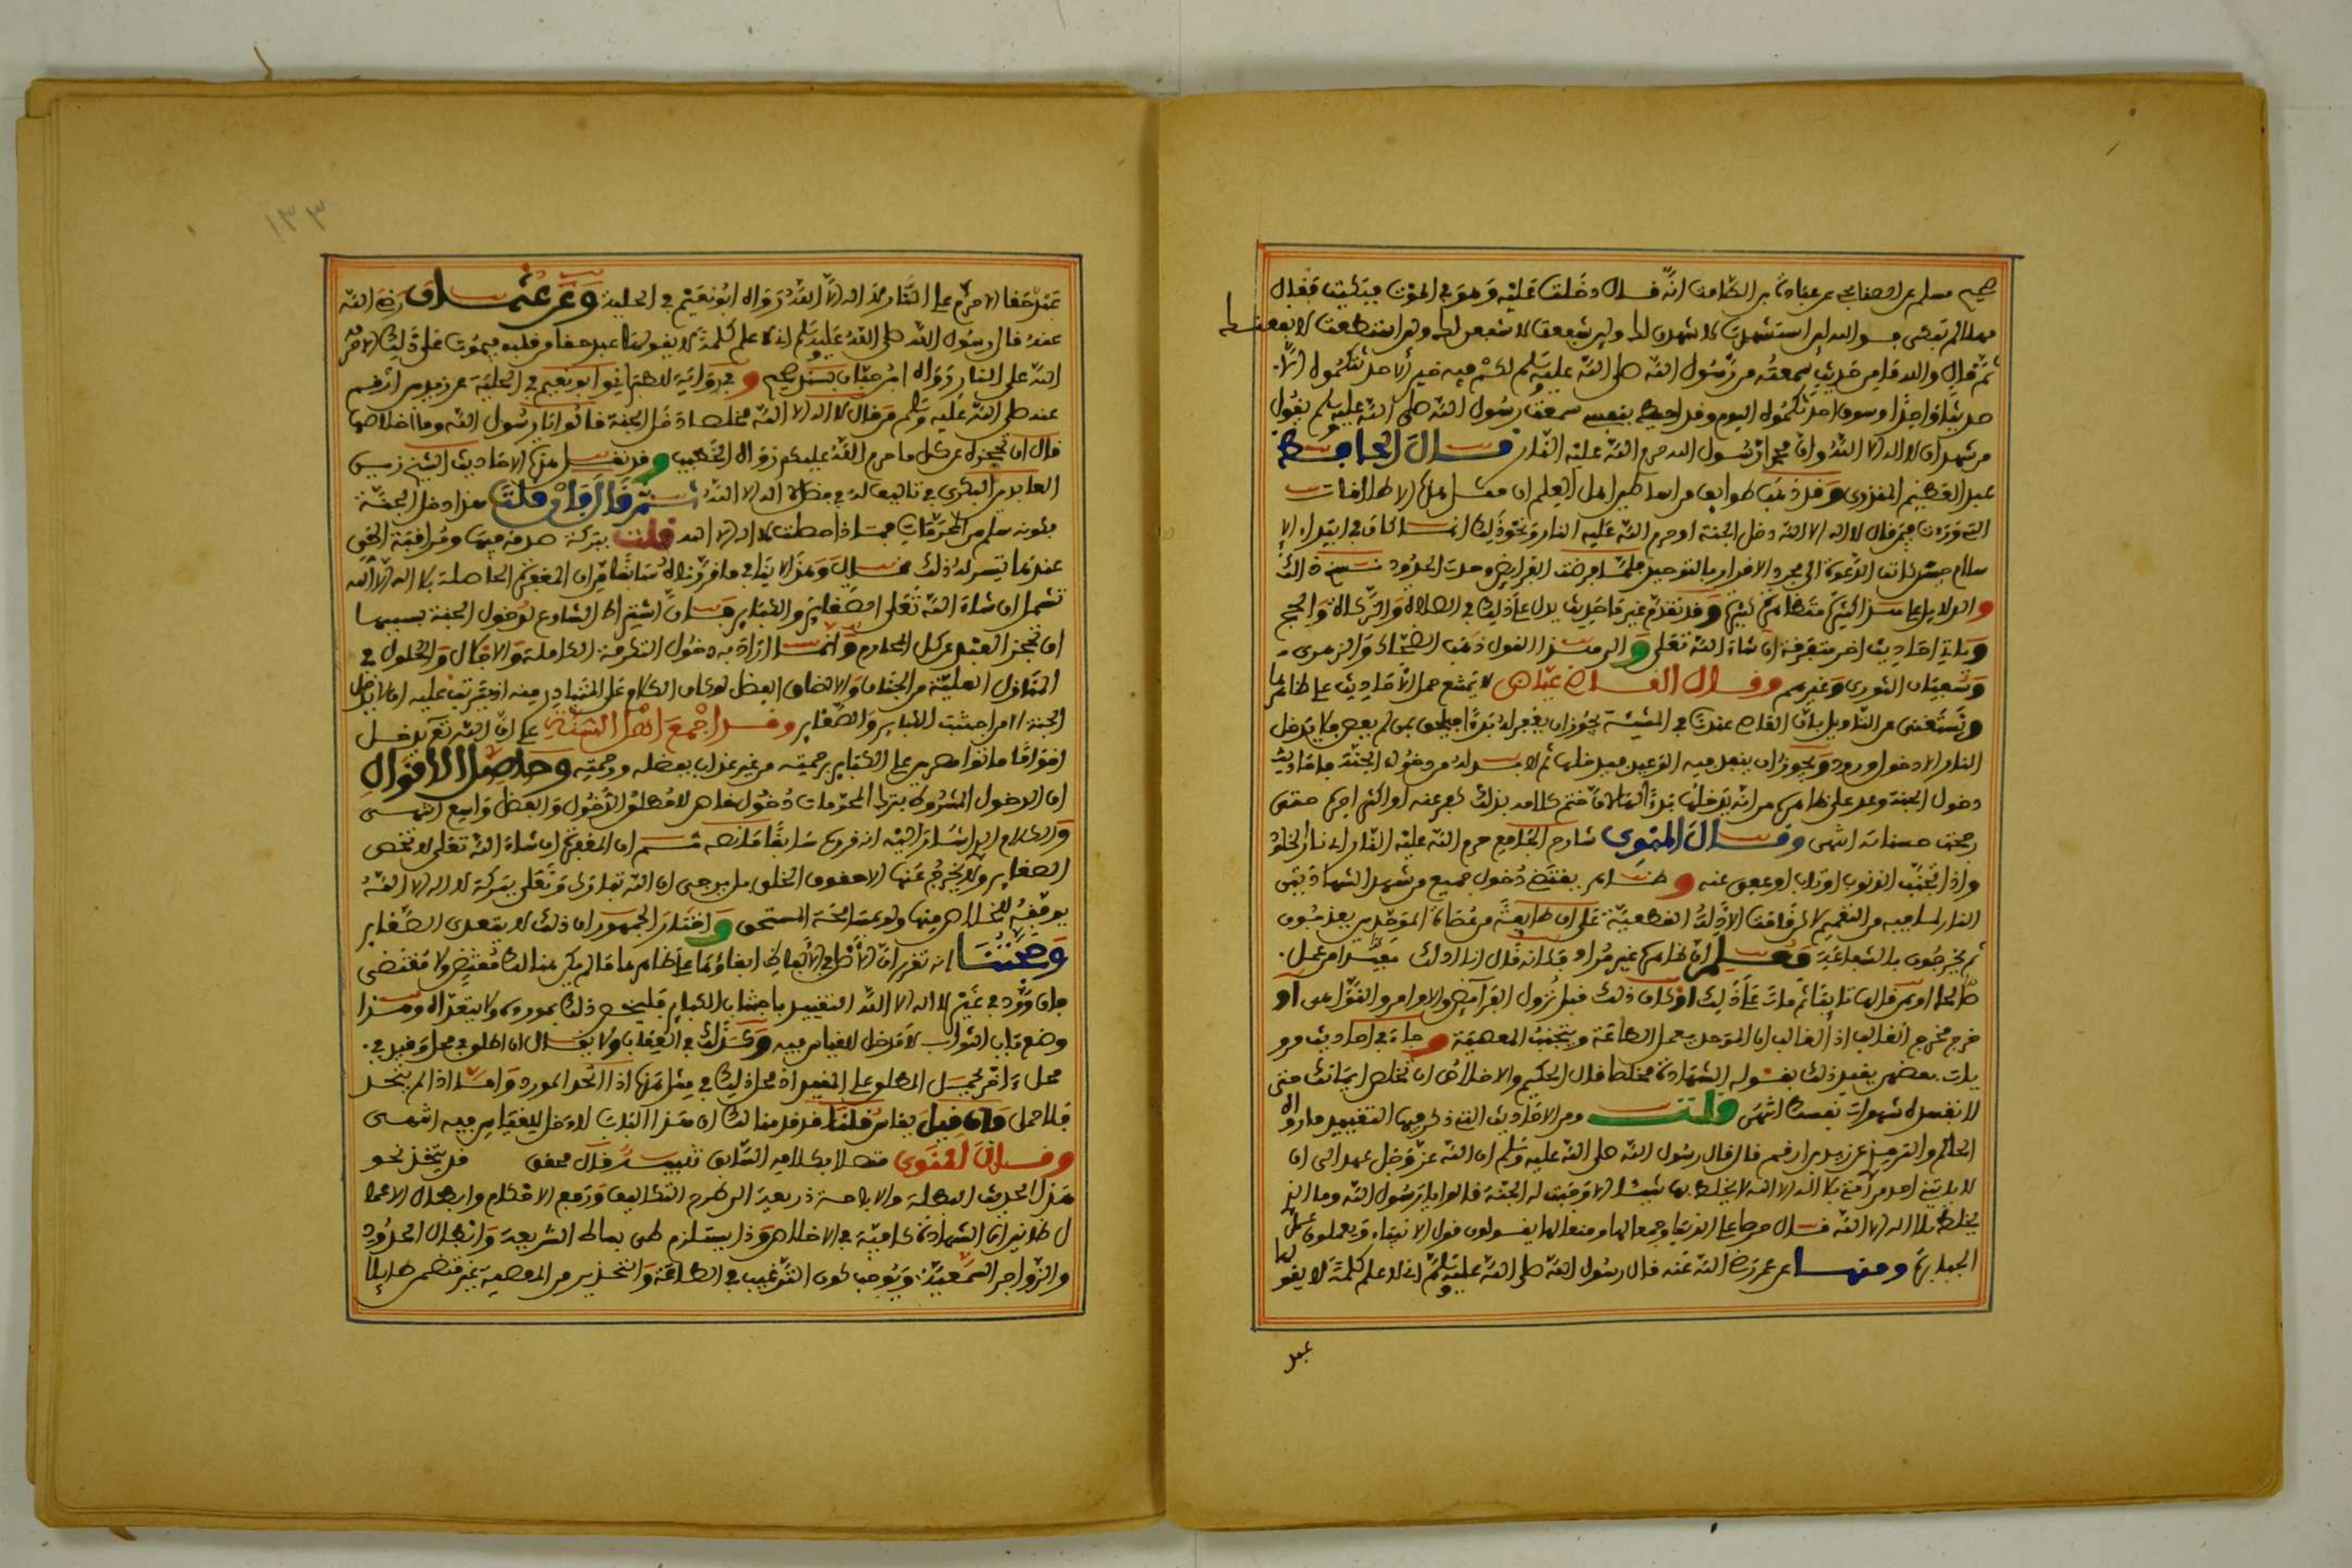 صحيح مسلم عن الصنابحي عن عبادة بن الصامت انه قال دخلت عليه وهو في الموت فبكيت فقال
مهلا لم تبكي فوالله لين استشهدت لاشهدن لك ولين شفعت لاشفعن لك ولين استطعت لانفعنك
ثم قال والله ما من حديث سمعته من رسول الله صلى الله عليه وسلم لكم فيه خير الا حدثتكموه الا
حديثا واحدا وسوف احدثكموه اليوم وقد احيط بنفسي سمعت رسول الله صلى الله عليه وسلم يقول
من شهد ان لا اله الا الله وان محمدا رسول الله حرم الله عليه النار قال الحافظ
عبد العظيم المنذري وقد ذهب طوايف من اساطين اهل العلم ان مثل هذه الاطلاقات
التي وردت فيمن قال لا اله الا الله دخل الجنة او حرم الله عليه النار ونحو ذلك انما كان في ابتداء الا
سلام حين كانت الدعوة الى مجرد الاقرار بالتوحيد فلما فرضت الفرايض وحدت الحدود نسخ ذلك
والدلايل على هذا كثيرة متظاهرة وقد تقدم غير ما حديث يدل على ذلك في الصلاة والزكاة والحج
وياتي احاديث اخر متفرقة ان شاء الله تعلى والى هذا القول ذهب الضحاك والزهري
وسفيان الثوري وغيرهم وقال القاضي عياض لا يمتنع حمل الاحاديث على ظاهرها
ونستغني عن التاويل بان القاصي عندنا في المشيئة يجوز ان يغفر له ابتداء فيلحق بمن لم يعص فلا يدخل
النار الا دخول ورود ويجوز ان ينفذ فيه الوعيد فيدخلها ثم لا بد له من دخول الجنة فاحاديث
رجحت حسناته انتهى وقال المناوي شارح الجامع حرم الله عليه النار اي نار الخلود
واذا تجنب الذنوب او تاب او عفي عنه وظاهره يقتضي دخول جميع من شهد الشهادتين
النار لما فيه من التعميم لكن قامت الادلة القطعية على ان طايفة من عصاة الموحدين يعذبون
ثم يخرجون بالشفاعة فعلم ان ظاهره غير مراد فكانه قال ان ذلك مقيد لمن عمل
صالحا او فيمن قالها تايبا ثم مات على ذلك او كان ذلك قبل نزول الفرايض والاوامر والنواهي او
خرج مخرج الغالب اذ الغالب ان الموحد يعمل الطاعة ويجتنب المعصية وجاء في احاديث مرو
يات بعضهم يقيد ذلك بقوله الشهادة مخلصا قال الحكيم والاخلاص ان تخلص ايمانك حتى
لا تفسده شهوات نفسك انتهى قلت ومن الاحاديث التي ذكر فيها التقييد ما رواه
الحاكم والترمذي عن زيد بن ارقم قال قال رسول الله صلى الله عليه وسلم ان الله عز وجل عهد الي ان
لا ياتيني احد من امتي بلا اله الا الله لا يخلط بها شيئا الا وجبت له الجنة قالوا يا رسول الله وما الذي
يخلط بلا اله الا الله قال حرصا على الدنيا وجمعا لها ومنعا لها يقولون قول الانبياء ويعملون عمل
الجبابرة ومنها عن عمر رضي الله عنه قال رسول الله صلى الله عليه وسلم اني لاعلم كلمة لا يقولها
عبد
١٣٣
عبد حقا الا حرم على النار لا اله الا الله رواه ابو نعيم في الحلية وعن عثمان رضي الله
عنه قال رسول الله صلى الله عليه وسلم اني لاعلم كلمة لا يقولها عبد حقا من قلبه فيموت على ذلك الا حرمه
الله على النار رواه ابن حبان بسند صحيح وفي رواية للاصبهاني وابو نعيم في الحلية عن زيد بن ارقم
عنه صلى الله عليه وسلم من قال لا اله الا الله مخلصا دخل الجنة قالوا يا رسول الله وما اخلاصها
قال ان تحجزه عن كل ما حرم الله عليكم رواه الخطيب وقد نقل هذه الاحاديث الشيخ زين
العابدين البكري في تاليف له في فضل لا اله الا الله ثم قال فان قلت هذا دخل الجنة
بكونه سلم من المحرمات فماذا حصلت لا اله الا الله قلت ببركة صدقه فيها ومراقبة الحق
عندها تيسر له ذلك فنال وهذا لا ينافي ما قررناه سابقا من ان المغفرة الحاصلة بلا اله الا الله
تشمل ان شاء الله تعلى الصغاير والكباير فان اشتراط الشارع لدخول الجنة بسببها
ان تحجز العبد عن كل المحارم وانما اراد به دخول التكرمة الكاملة والاجلال والحلول في
المنازل العلية من الجنان والا لضاق الفضل لو كان الكلام على المتبادر منه اذ يترتب عليه ان لا يدخل
الجنة الا من اجتنب الكباير والصغاير وقد اجمع اهل السنة على ان الله تعلى يدخل
اقواما ماتوا مصرين على الكباير برحمته من غير عذاب بفضله ورحمته وحاصل الاقوال
ان الدخول المشروط بترك المحرمات دخول خاص لا مطلق الدخول والفضل واسع انتهى
والكلام الذي اشار اليه انه قرره سابقا ما نصه ثم ان المغفرة ان شاء الله تعلى لا تختص
الصغاير ولا يخرج عنها الا حقوق الخلق بل يرجى ان الله تبارك وتعلى ببركة لا اله الا الله
يوقفه للخلاص منها واختار الجمهور ان ذلك لا يتعدى الصغاير
وحجتنا انه تقرر ان الاصل في الالفاظ ابقاؤها على ظاهرها ما لم يكن هنالك مقتض ولا مقتضى
فان ورد في غير لا اله الا الله التقييد باجتناب الكباير فليخص ذلك بمورده ولا يتعداه وهذا
وضع باب الثواب لا مدخل للقياس فيه وكذلك في العقاب ولا يقال ان اطلق في محل وقيد في
محل ءاخر يحمل المطلق على المقيد اذ محل ذلك في مثل هذه اذا اتحد المورد واما اذا لم يتحد
فلا حمل وان قيل يقاس قلنا قد قدمنا لك ان هذا الباب لا دخل للقياس فيه انتهى
وقال المناوي متصلا بكلامه السابق تنبيه قال محقق قد يتخذ نحو
هذا الحديث البطلة والاباحة ذريعة الى طرح التكاليف ورفع الاحكام وابطال الاعما
ل ظانين ان الشهادة كافية في الاخلاص وذا يستلزم طي بساط الشريعة وابطال الحدود
والزواجر السمعية ويوجب كون الترغيب في الطاعة والتحذير من المعصية غير متضمن طايلا